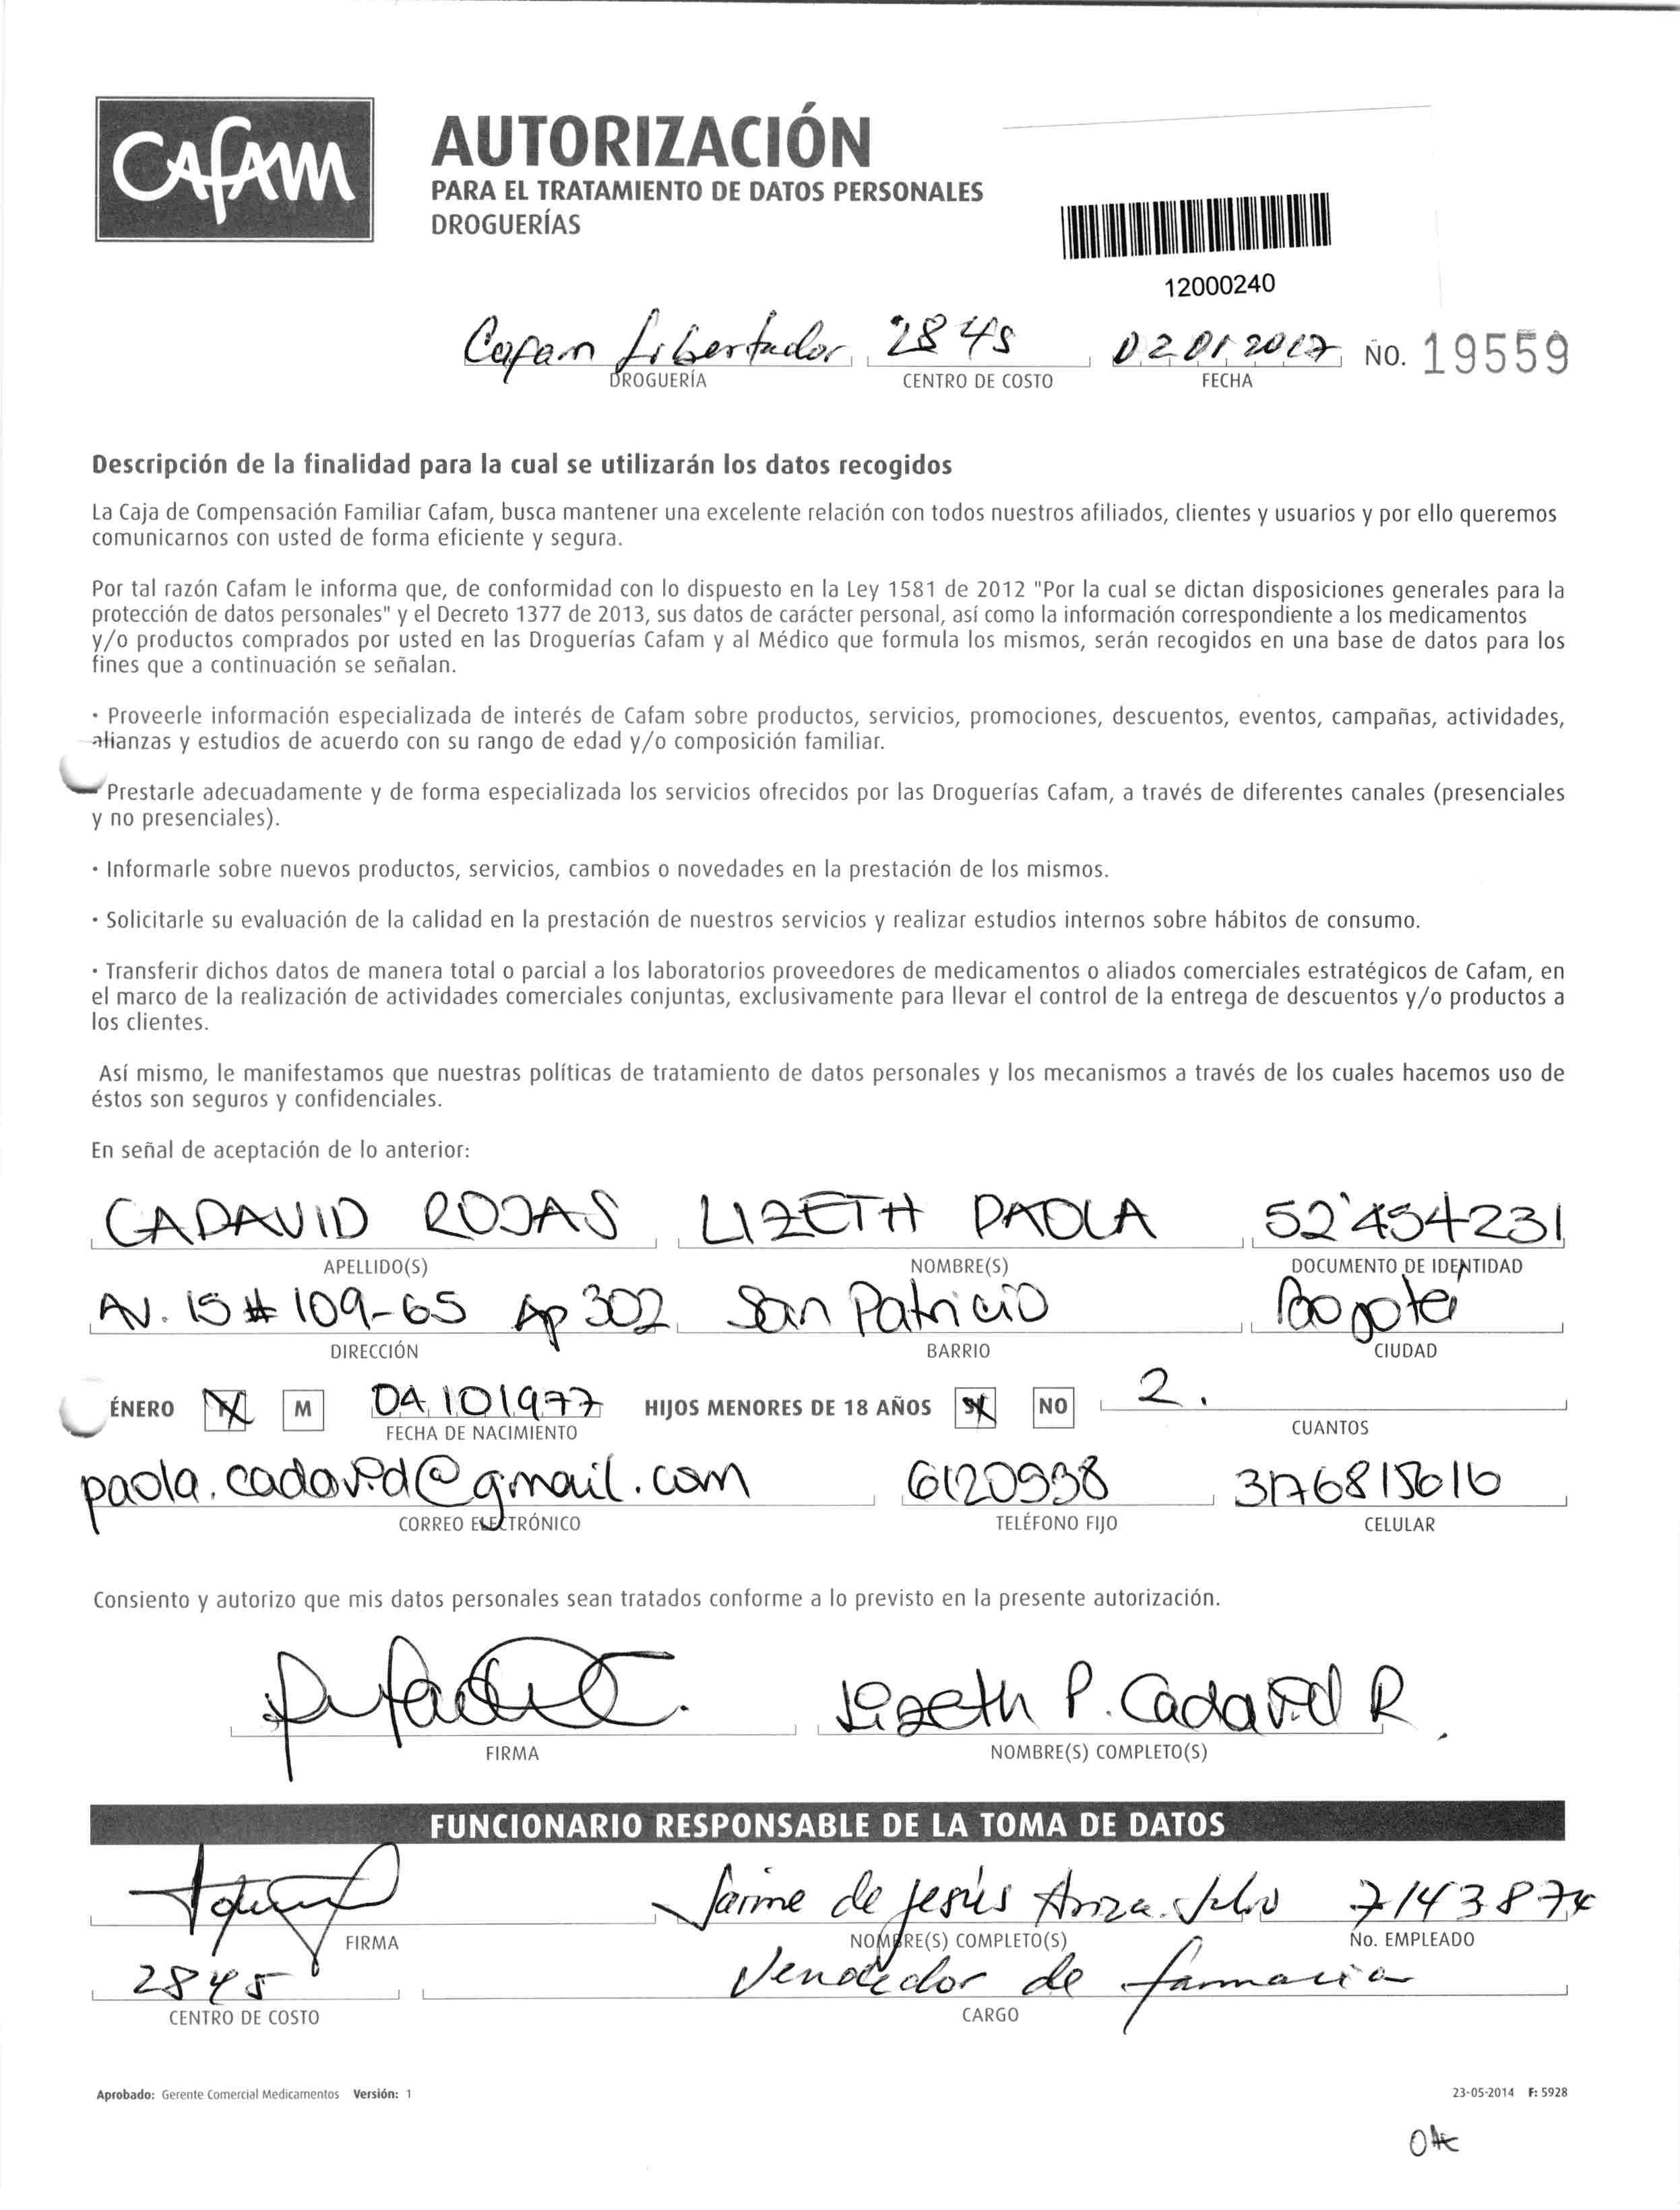 CAFAM
AUTORIZACIÓN
PARA EL TRATAMIENTO DE DATOS PERSONALES
DROGUERÍAS
12000240
Cafam Libertador 2845 02 01 2017 NO. 19559
DROGUERÍA CENTRO DE COSTO FECHA
Descripción de la finalidad para la cual se utilizarán los datos recogidos
La Caja de Compensación Familiar Cafam, busca mantener una excelente relación con todos nuestros afiliados, clientes y usuarios y por ello queremos
comunicarnos con usted de forma eficiente y segura.
Por tal razón Cafam le informa que, de conformidad con lo dispuesto en la Ley 1581 de 2012 "Por la cual se dictan disposiciones generales para la
protección de datos personales" y el Decreto 1377 de 2013, sus datos de carácter personal, así como la información correspondiente a los medicamentos
y/o productos comprados por usted en las Droguerías Cafam y al Médico que formula los mismos, serán recogidos en una base de datos para los
fines que a continuación se señalan.
· Proveerle información especializada de interés de Cafam sobre productos, servicios, promociones, descuentos, eventos, campañas, actividades,
alianzas y estudios de acuerdo con su rango de edad y/o composición familiar.
Prestarle adecuadamente y de forma especializada los servicios ofrecidos por las Droguerías Cafam, a través de diferentes canales (presenciales
y no presenciales).
· Informarle sobre nuevos productos, servicios, cambios o novedades en la prestación de los mismos.
· Solicitarle su evaluación de la calidad en la prestación de nuestros servicios y realizar estudios internos sobre hábitos de consumo.
· Transferir dichos datos de manera total o parcial a los laboratorios proveedores de medicamentos o aliados comerciales estratégicos de Cafam, en
el marco de la realización de actividades comerciales conjuntas, exclusivamente para llevar el control de la entrega de descuentos y/o productos a
los clientes.
Así mismo, le manifestamos que nuestras políticas de tratamiento de datos personales y los mecanismos a través de los cuales hacemos uso de
éstos son seguros y confidenciales.
En señal de aceptación de lo anterior:
CADAVID ROJAS LIZETH PAOLA 52'454231
APELLIDO(S) NOMBRE(S) DOCUMENTO DE IDENTIDAD
AV. 15 # 109-65 Ap 302 San Patricio Bogotá
DIRECCIÓN BARRIO CIUDAD
ÉNERO F M 04 10 1977 HIJOS MENORES DE 18 AÑOS SI NO 2.
FECHA DE NACIMIENTO CUANTOS
paola.cadavid@gmail.com 6120938 3176815616
CORREO ELECTRÓNICO TELÉFONO FIJO CELULAR
Consiento y autorizo que mis datos personales sean tratados conforme a lo previsto en la presente autorización.
Lizeth P. Cadavid R.
FIRMA NOMBRE(S) COMPLETO(S)
FUNCIONARIO RESPONSABLE DE LA TOMA DE DATOS
Jaime de Jesús Ariza 7143874
FIRMA NOMBRE(S) COMPLETO(S) No. EMPLEADO
2845 Vendedor de farmacia
CENTRO DE COSTO CARGO
Aprobado: Gerente Comercial Medicamentos Versión: 1 23-05-2014 F: 5928
OK